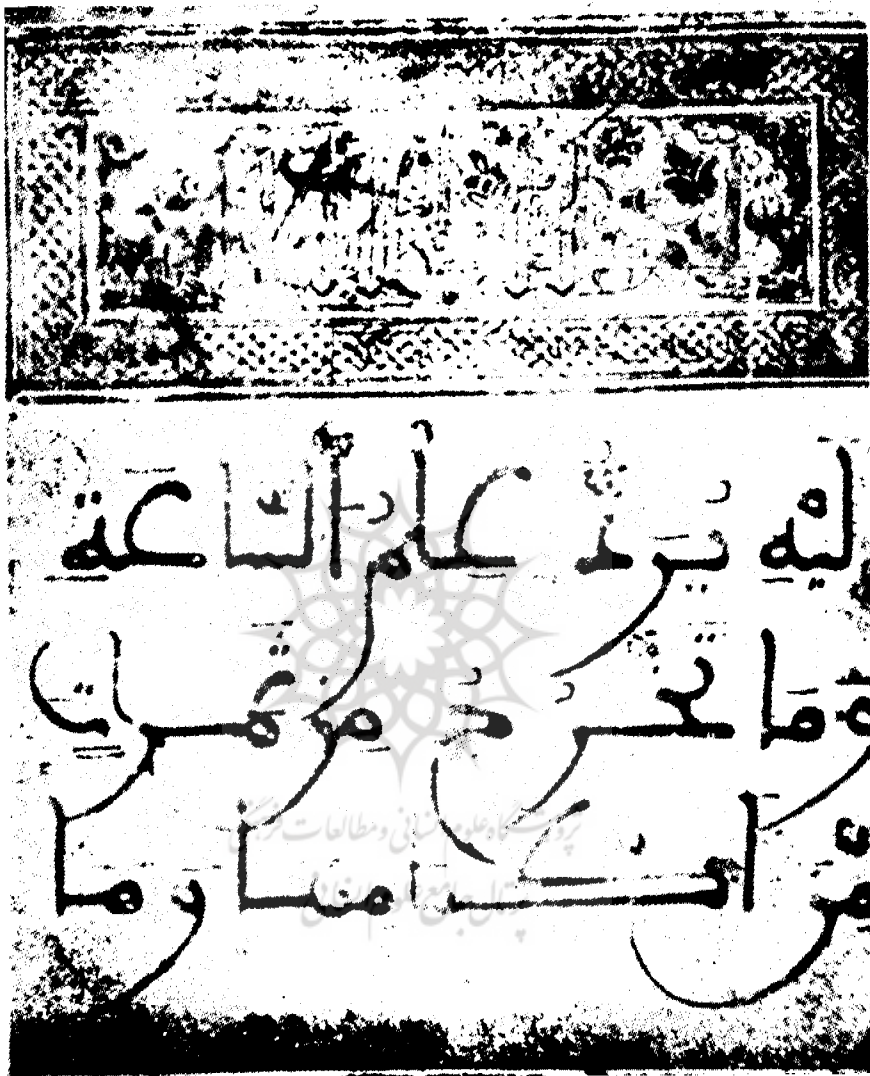 إِلَيْهِ يُرَدُّ عِلْمُ السَّاعَةِ
وَمَا تَخْرُجُ مِنْ ثَمَرَاتٍ
مِنْ أَكْمَامِهَا وَمَا
پژوهشگاه علوم انسانی و مطالعات فرهنگی
پرتال جامع علوم انسانی